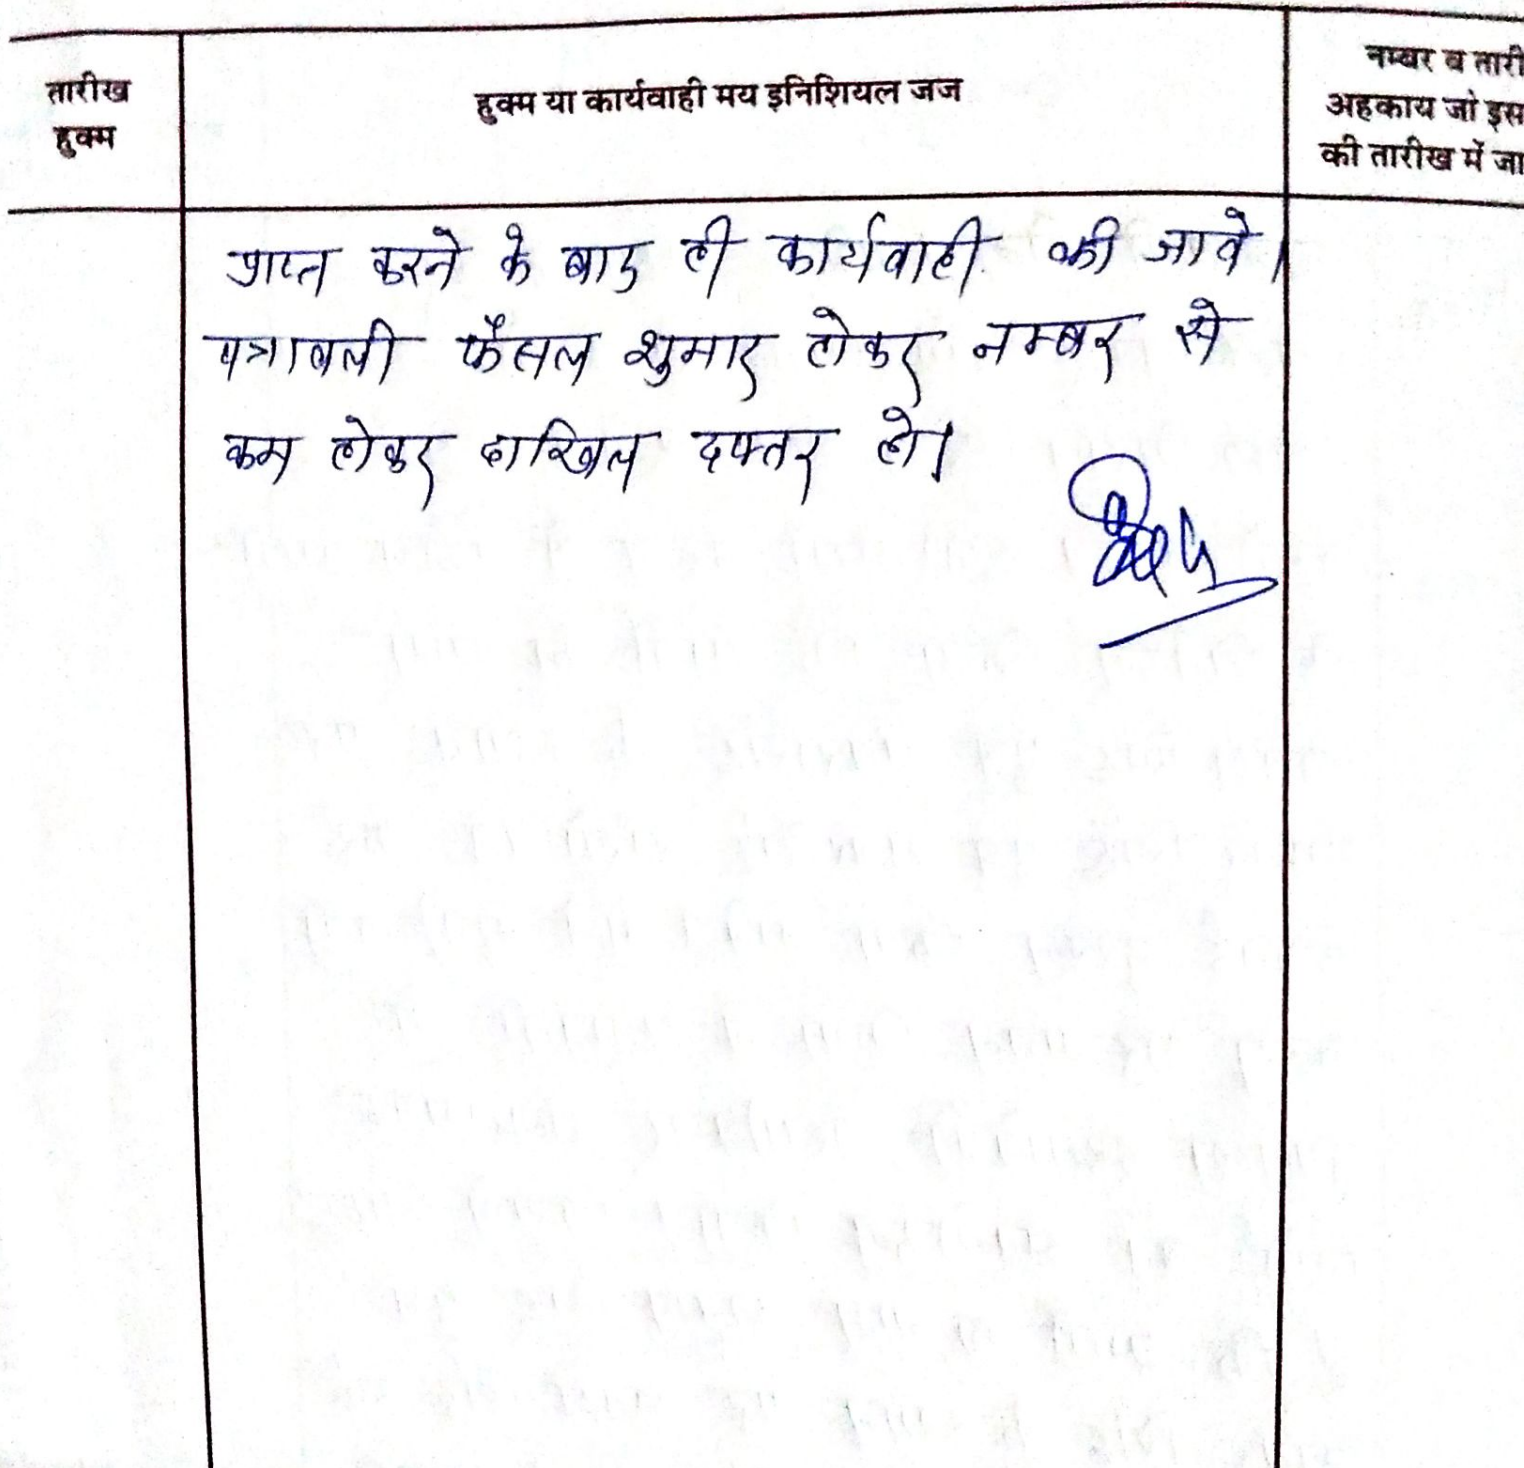 तारीख
हुक्म
हुक्म या कार्यवाही मय इनिशियल जज
नम्बर व तारी
अहकाय जो इस
की तारीख में जा
प्राप्त करने के बाद ही कार्यवाही की जावे।
पत्रावली फैसल शुमार होकर नम्बर से
कम होकर दाखिल दफ्तर हो।